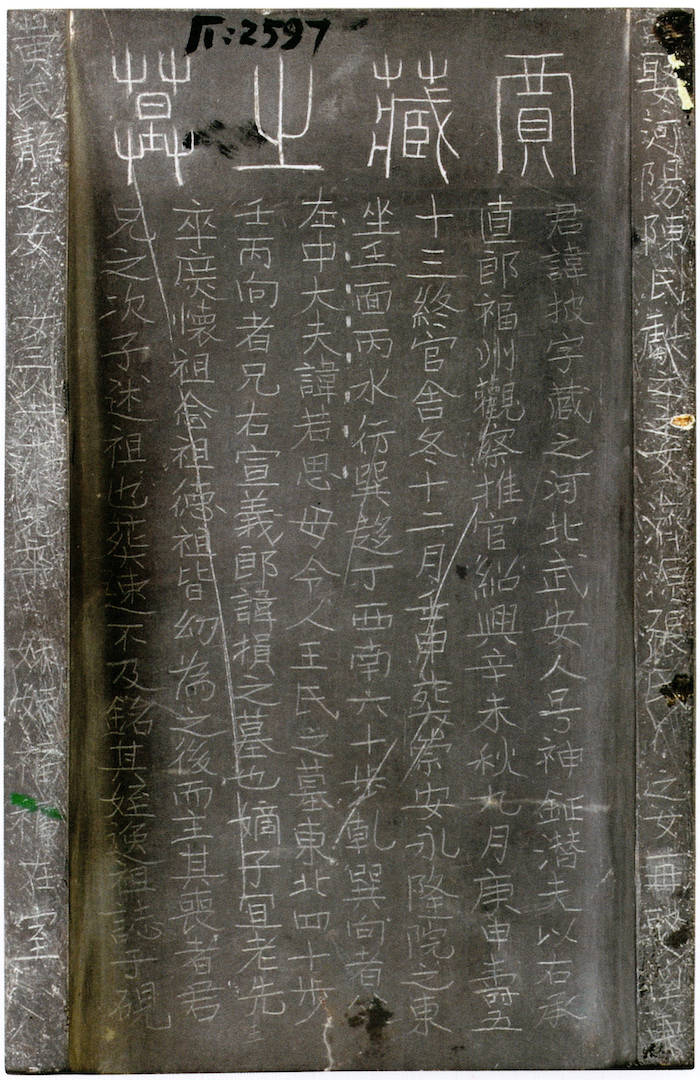 Π:2597
賈藏之墓
娶河陽陳氏獻 之女再
君諱披字藏之河北武安人号神鉦潛夫以右承
直郎福州觀察推官紹興辛未秋九月庚申壽五
十三終官舍冬十二月壬申葬崇安永隆院之東
坐壬面丙水行巽趍丁西南六十步乾巽向者
左中大夫諱若思母令人王氏之墓東北四十步
壬丙向者兄右宣義郎諱損之墓也嫡子宜老先
卒庶懷祖念祖德祖皆幼為之後而主其喪者君
兄之次子述祖也葬速不及銘其姪 祖誌于硯
黃氏靜之女 在室